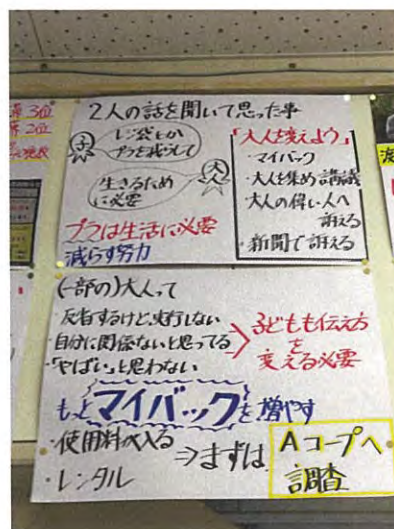 第3位
第2位
2人の話を聞いて思った事
子
レジ袋とか
プラを減らして
大
生きるため
に必要
プラは生活に必要
減らす努力
「大人を変えよう」
・マイバック
・大人を集め講議
・大人の偉い人へ
訴える
・新聞で訴える
(一部の)大人って
・反省するけど実行しない
・自分に関係ないと思ってる
・「やばい」と思わない
子どもも伝え方
を
変える必要
もっとマイバックを増やす
・使用料が入る
・レンタル
⇒まずは
Aコープへ
調査